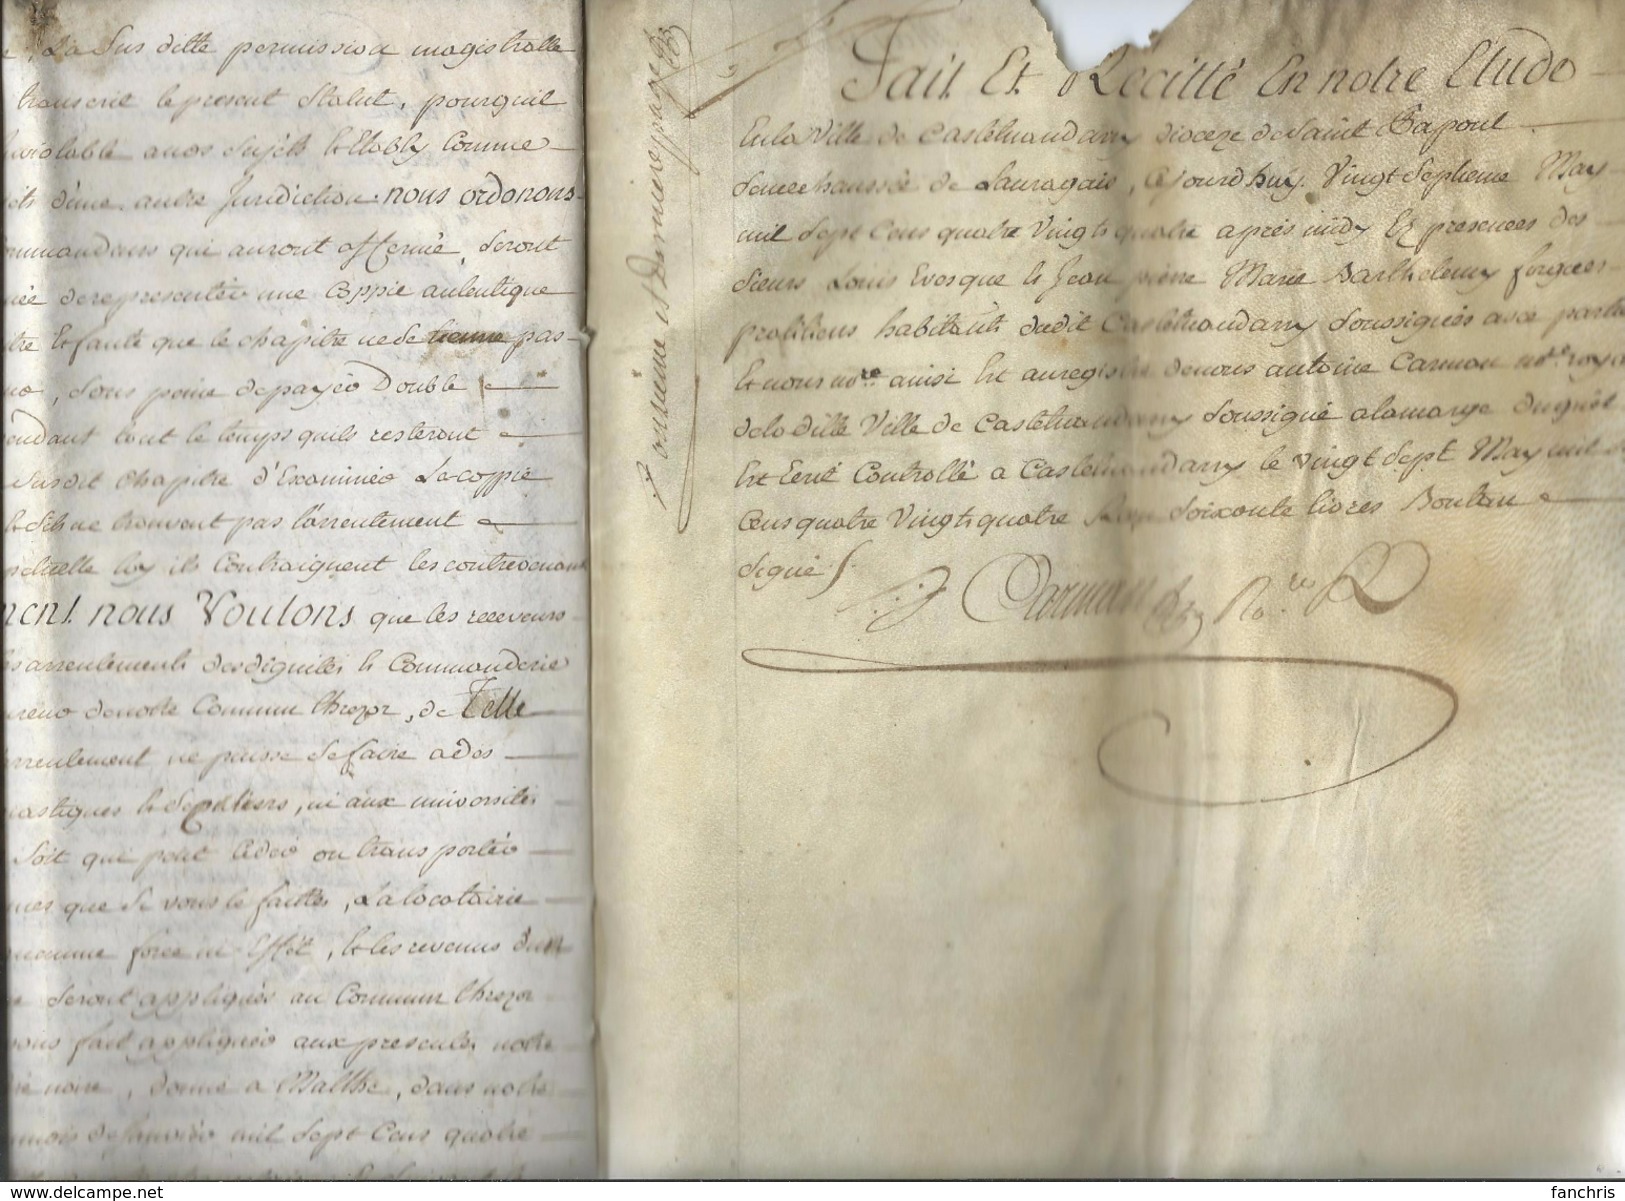 La Sus ditte permission magistralle
transcrit le present Statut, pourquil
inviolable a nos Sujets et Etably Comme
d'une autre Juridiction. nous ordonons
commandeurs qui auront affermé, Seront
de representer une Coppie autentique
Et faute que le chapitre ne Se tienne pas
, Sous peine de payer Double
pendant tout le temps quils resteront
Susdit Chapitre d'Examiner La coppie
et S'ils ne trouvent pas l'arrentement
ils Contraignent les contrevenants
nous Voulons que les receveurs
arrentements des dignités et Commanderie
de notre Commun thrézor, de Telle
arrentement ne puisse Se faire a des
et Seculiers, ni aux université
Soit qui peut Ceder ou transporter
que Si vous le faittes, La locatairie
aucunne force ni Effet, Et les revenus
Seront appliqués au Commun thrézor
fait appliquer aux presentes notre
noire, donné a Malthe, dans notre
mois de Janvier mil Sept Cens quatre
Fait Et Recitté En notre Etude
En la Ville de Castelnaudarry dioceze de Saint Papoul
Senechaussée de Lauragais, Cejourdhuy Vingt Septieme May
mil Sept Cens quatre Vingts quatre après midy Ez presences des
Sieurs Louis Evesque et Jean pierre Marie Barthelemy forgues
praticiens habitants dudit Castelnaudarry Soussignés avec partie
Et nous nore. ainsi Et au registre de nous antoine Carman notre. royal
de la ditte Ville de Castelnaudarry Soussigné a la marge duquel
Est Ecrit Controllé a Castelnaudarry le vingt Sept May mil Sept
Cens quatre Vingts quatre Reçu Soixante livres Boutan
Signé
Carman Nore R
et Derniere page
fanchris